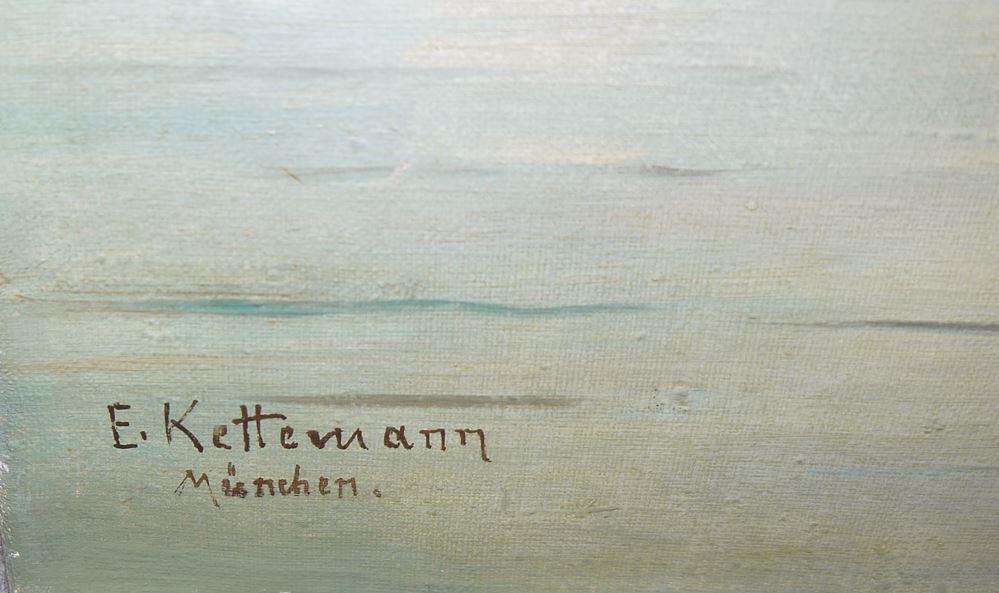 E. Kettemann
München.